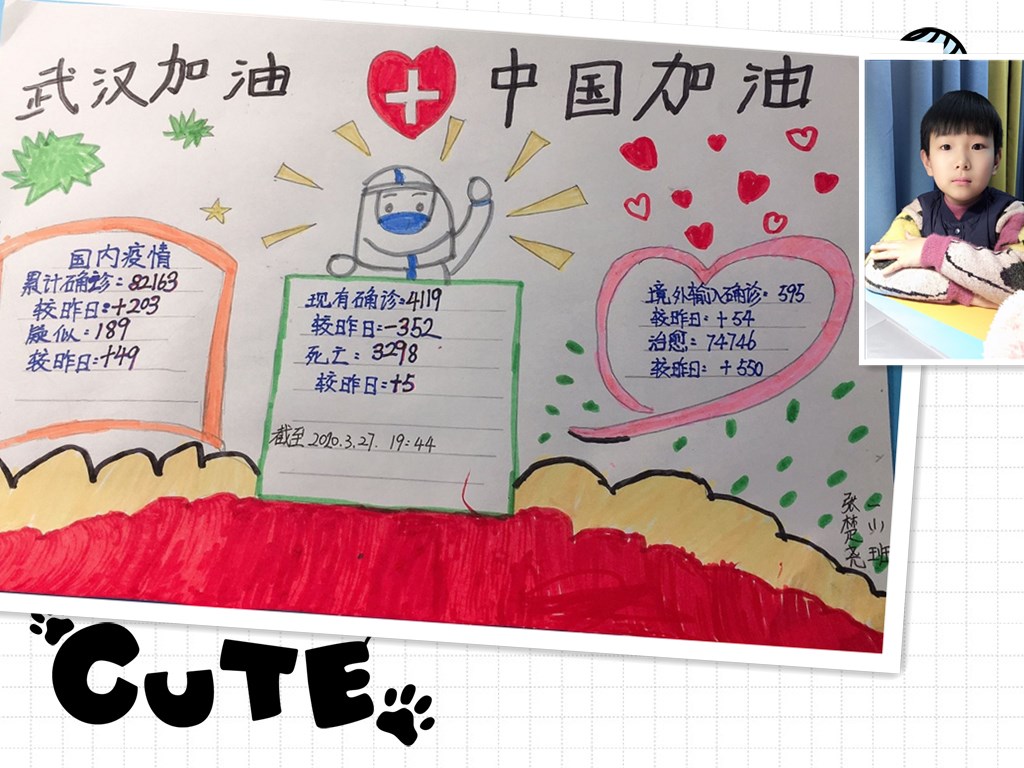 武汉加油 中国加油
国内疫情
累计确诊：82163
较昨日：+203
疑似：189
较昨日：+49
现有确诊：4119
较昨日：-352
死亡：3298
较昨日：+5
截至 2020.3.27. 19:44
境外输入确诊：595
较昨日：+54
治愈：74746
较昨日：+550
一小班
张楚尧
CUTE